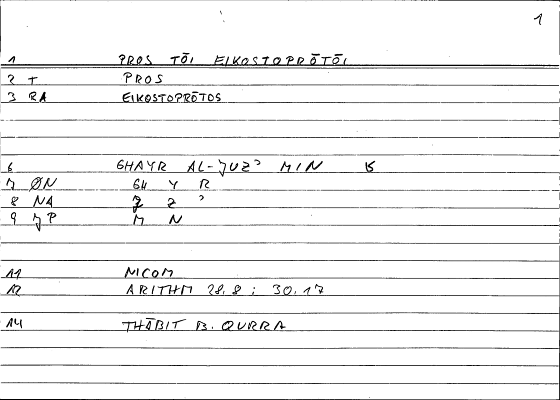 1
1 PROS TŌI EIKOSTOPRŌTŌI
2 T PROS
3 RA EIKOSTOPRŌTOS
6 GHAYR AL-JUZʾ MIN
7 ØN GH Y R
8 NA J Z ʾ
9 JP M N
11 NICOM
12 ARITHM 28.8 : 30.17
14 THĀBIT B. QURRA